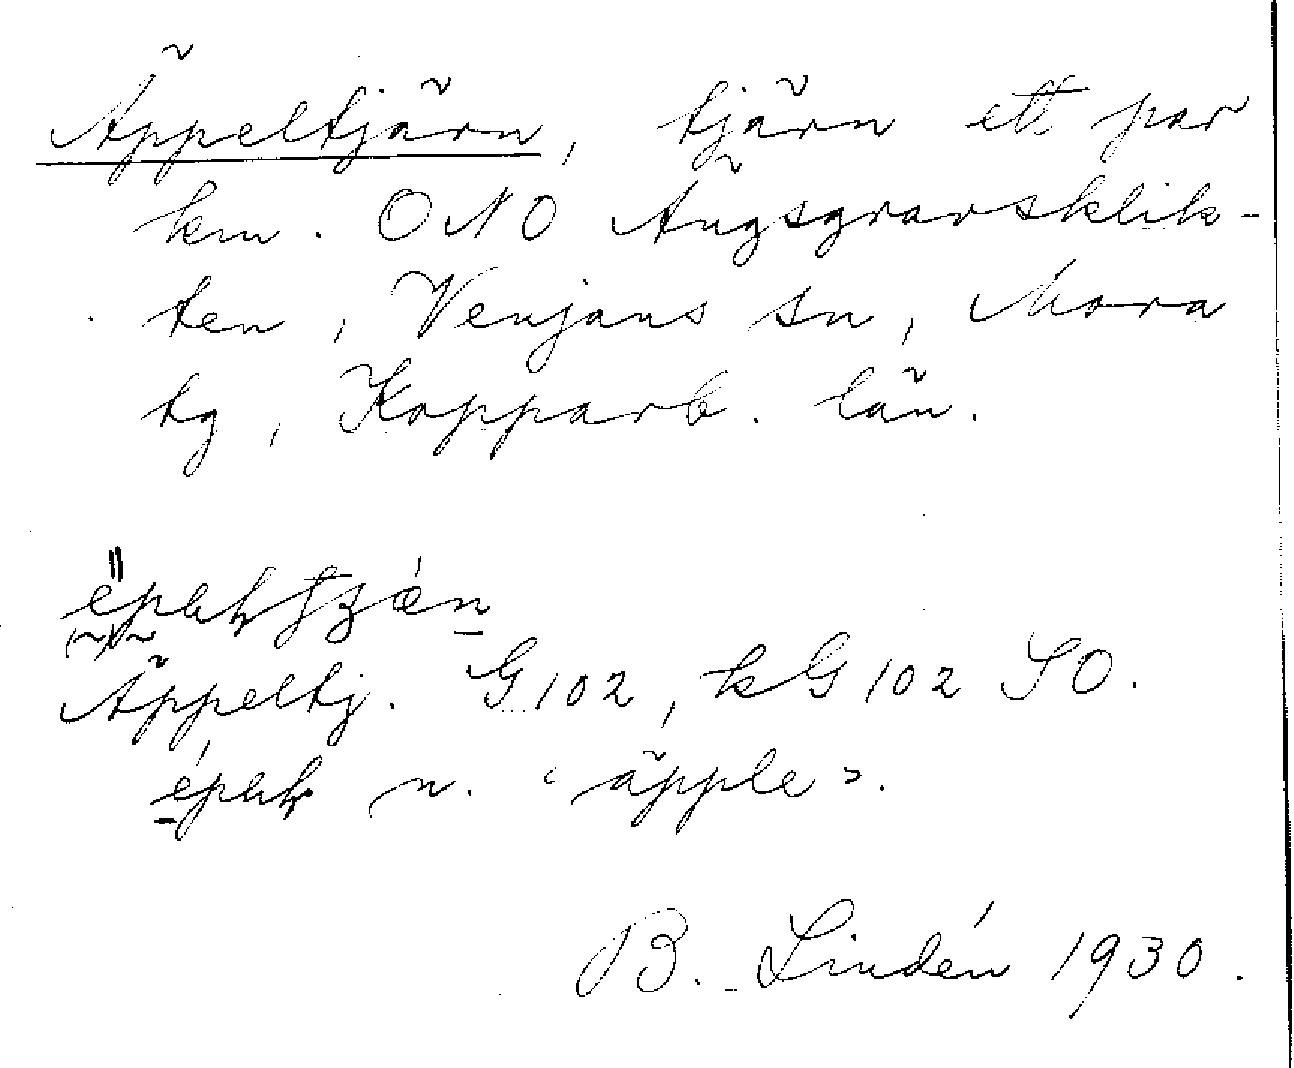 Äppeltjärn, tjärn ett par
km. ONO Ängsgravsklik-
ten, Venjans sn, Mora
tg, Kopparb. län.
Äppeltj. G102, kG102 SO.
n. ‹äpple›.
B. Lindén 1930.